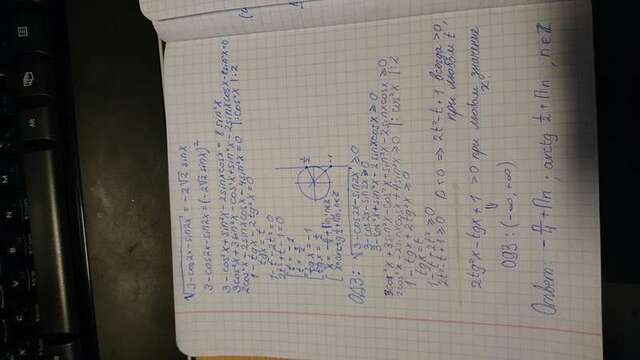 Alt
√3-cos2x-sin2x = -2√2 sinx
3-cos2x-sin2x=(-2√2 sinx)²
3-cos²x+sin²x-2sinxcosx=8sin²x
3cos²x+3sin²x-cos²x+sin²x-2sinxcosx-8sin²x=0
2cos²x-2sinxcosx-4sin²x=0 |:cos²x |:2
1-tgx-2tg²x=0
tgx=t
1-t-2t²=0
2t²+t-1=0
[t=-1
t=½
[tgx=-1
tgx=½
[x=-π/4+Πn; n∈Z
x=arctg½+Πn, n∈Z
½
-1
ОДЗ: √3-cos2x-sin2x ≥0
3-cos2x-sin2x ≥0
3-cos²x+sin²x-2sinxcosx ≥0
3cos²x+3sin²x-cos²x+sin²x-2sinxcosx ≥0
2cos²x-2sinxcosx+4sin²x ≥0 |:cos²x |:2
1-tgx+2tg²x ≥0
tgx=t
1-t+2t² ≥0
2t²-t+1 ≥0 D<0 => 2t²-t+1 всегда >0,
при любом t
2tg²x-tgx+1 >0 при любом значение
x
⇓
ОДЗ: (-∞,+∞)
Ответ: -π/4+Πn ; arctg ½+Πn , n∈Z